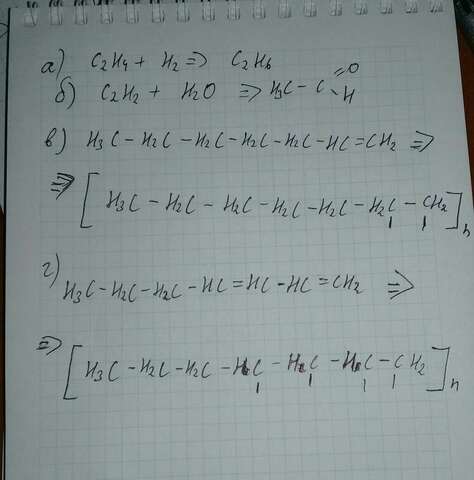 а) C2H4 + H2 => C2H6
б) C2H2 + H2O => H3C - C =O - H
в) H3C - H2C - H2C - H2C - H2C - HC = CH2 =>
=> [ H3C - H2C - H2C - H2C - H2C - H2C - CH2 ]n
г) H3C - H2C - H2C - HC = HC - HC = CH2 =>
=> [ H3C - H2C - H2C - HC - HC - HC - CH2 ]n